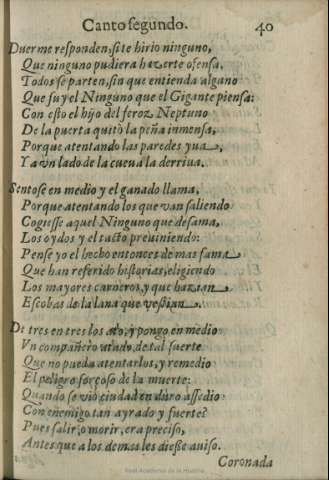 Canto segundo. 40
Duerme responden, si te hirio ninguno,
Que ninguno pudiera hazerte ofensa,
Todos se parten, sin que entienda alguno
Que fuy el Ninguno que el Gigante piensa:
Con esto el hijo del feroz Neptuno
De la puerta quitò la peña inmensa,
Porque atentando las paredes yua,
Y a vn lado de la cueua la derriua.
Sentose en medio y el ganado llama,
Porque atentando los que van saliendo
Cogiesse aquel Ninguno que desama,
Los oydos y el tacto preuiniendo:
Pense yo el hecho entonces de mas fama
Que han referido historias, eligendo
Los mayores carneros, y que hazian,
Escobas de la lana que vestian.
De tres en tres los ato, y pongo en medio
Vn compañero atado, de tal suerte
Que no pueda atentarlos, y remedio
El peligro forçoso de la muerte:
Quando se viò ciudad en duro assedio
Con enemigo tan ayrado y fuerte?
Pues salir, o morir, era preciso,
Antes que a los demas les diesse auiso.
Coronada
Real Academia de la Historia